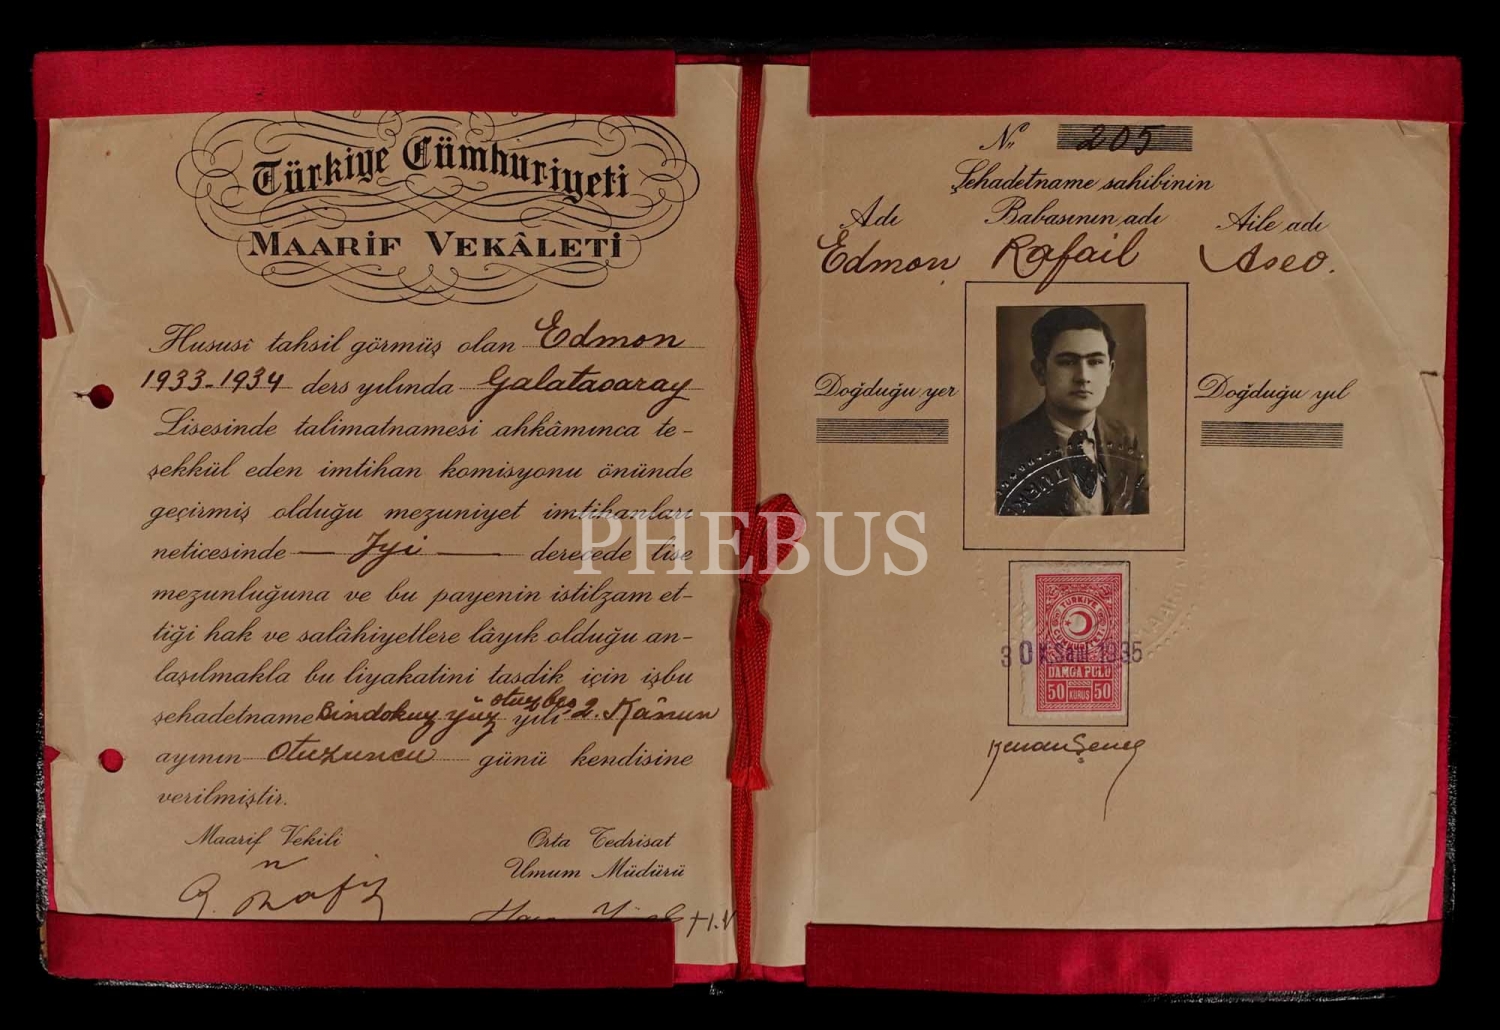 Türkiye Cümhuriyeti
MAARİF VEKÂLETİ
Hususî tahsil görmüş olan Edmon
1933-1934 ders yılında Galatasaray
Lisesinde talimatnamesi ahkâmınca te-
şekkül eden imtihan komisyonu önünde
geçirmiş olduğu mezuniyet imtihanları
neticesinde — İyi — derecede lise
mezunluğuna ve bu payenin istilzam et-
tiği hak ve salâhiyetlere lâyık olduğu an-
laşılmakla bu liyakatini tasdik için işbu
şehadetname Bindokuz yüz otuzbeş yılı 2. Kânun
ayının Otuzuncu günü kendisine
verilmiştir.
Maarif Vekili
Orta Tedrisat
Umum Müdürü
No 205
Şehadetname sahibinin
Adı Babasının adı Aile adı
Edmon Rafail Aseo.
Doğduğu yer Doğduğu yıl
TÜRKİYE
CÜMHURİYETİ
30 K.Sani 1935
DAMGA PULU
50 KURUŞ 50
PHEBUS